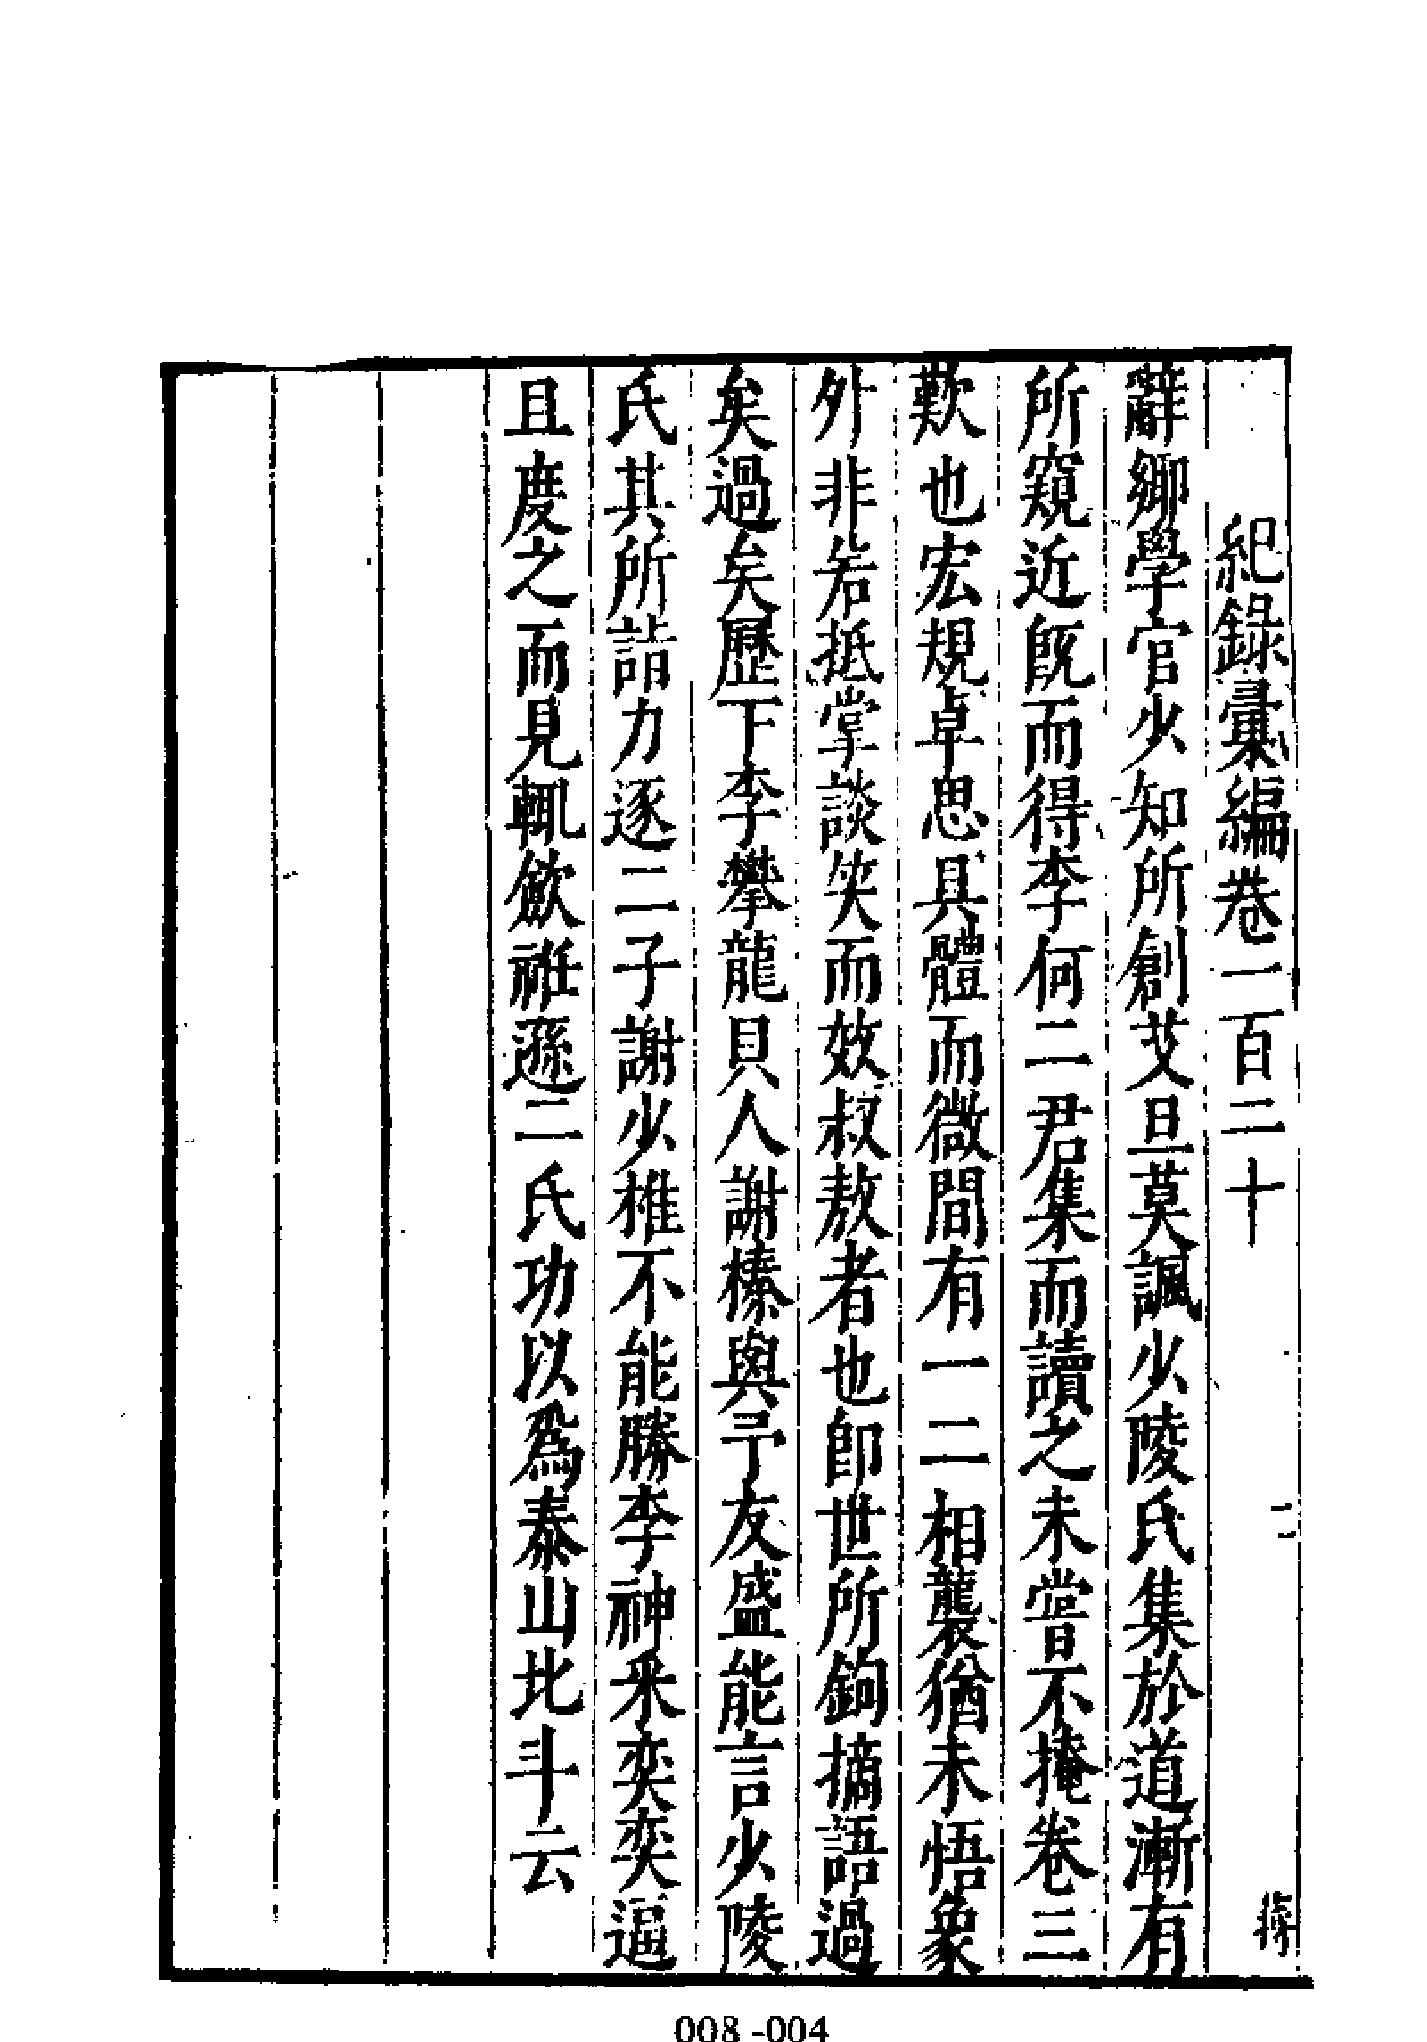 紀錄彙編卷一百二十
二
辭鄉學官少知所創艾旦莫諷少陵氏集於道漸有
所窺近旣而得李何二君集而讀之未嘗不掩卷三
歎也宏規卓思具體而微間有一二相襲猶未悟象
外非若抵掌談笑而效叔敖者也卽世所鉤摘語過
矣過矣歷下李攀龍貝人謝榛與予友盛能言少陵
氏其所詣力逐二子謝少椎不能勝李神采奕奕逼
且度之而見輒歛袵遜二氏功以爲泰山北斗云
008 -004